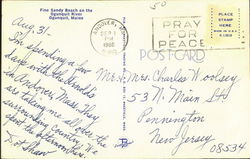 Fine Sandy Beach on the
Ogunquit River
Ogunquit, Maine
Aug. 31-
I'm spending a few
days with friends
in Andover, Mass. They
are taking me all over the
surrounding country. We
spent the afternoon here.
Dot Shaw
ANDOVER, MASS
PM
PRAY
FOR
PEACE
POSTCARD
PLACE
STAMP
HERE
Mr. & Mrs. Charles Woolsey
53 N. Main St.
Pennington
New Jersey
08534
50